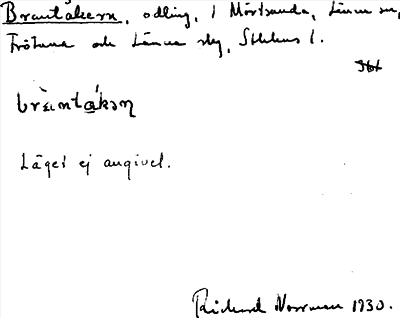 Brantåkern, odling, i Mörtsunda, Länna sn,
Frötuna och Länna skg, Sthlms l.
bræ̀intǻkəɳ
Läget ej angivet.
Rickard Norrman 1930.